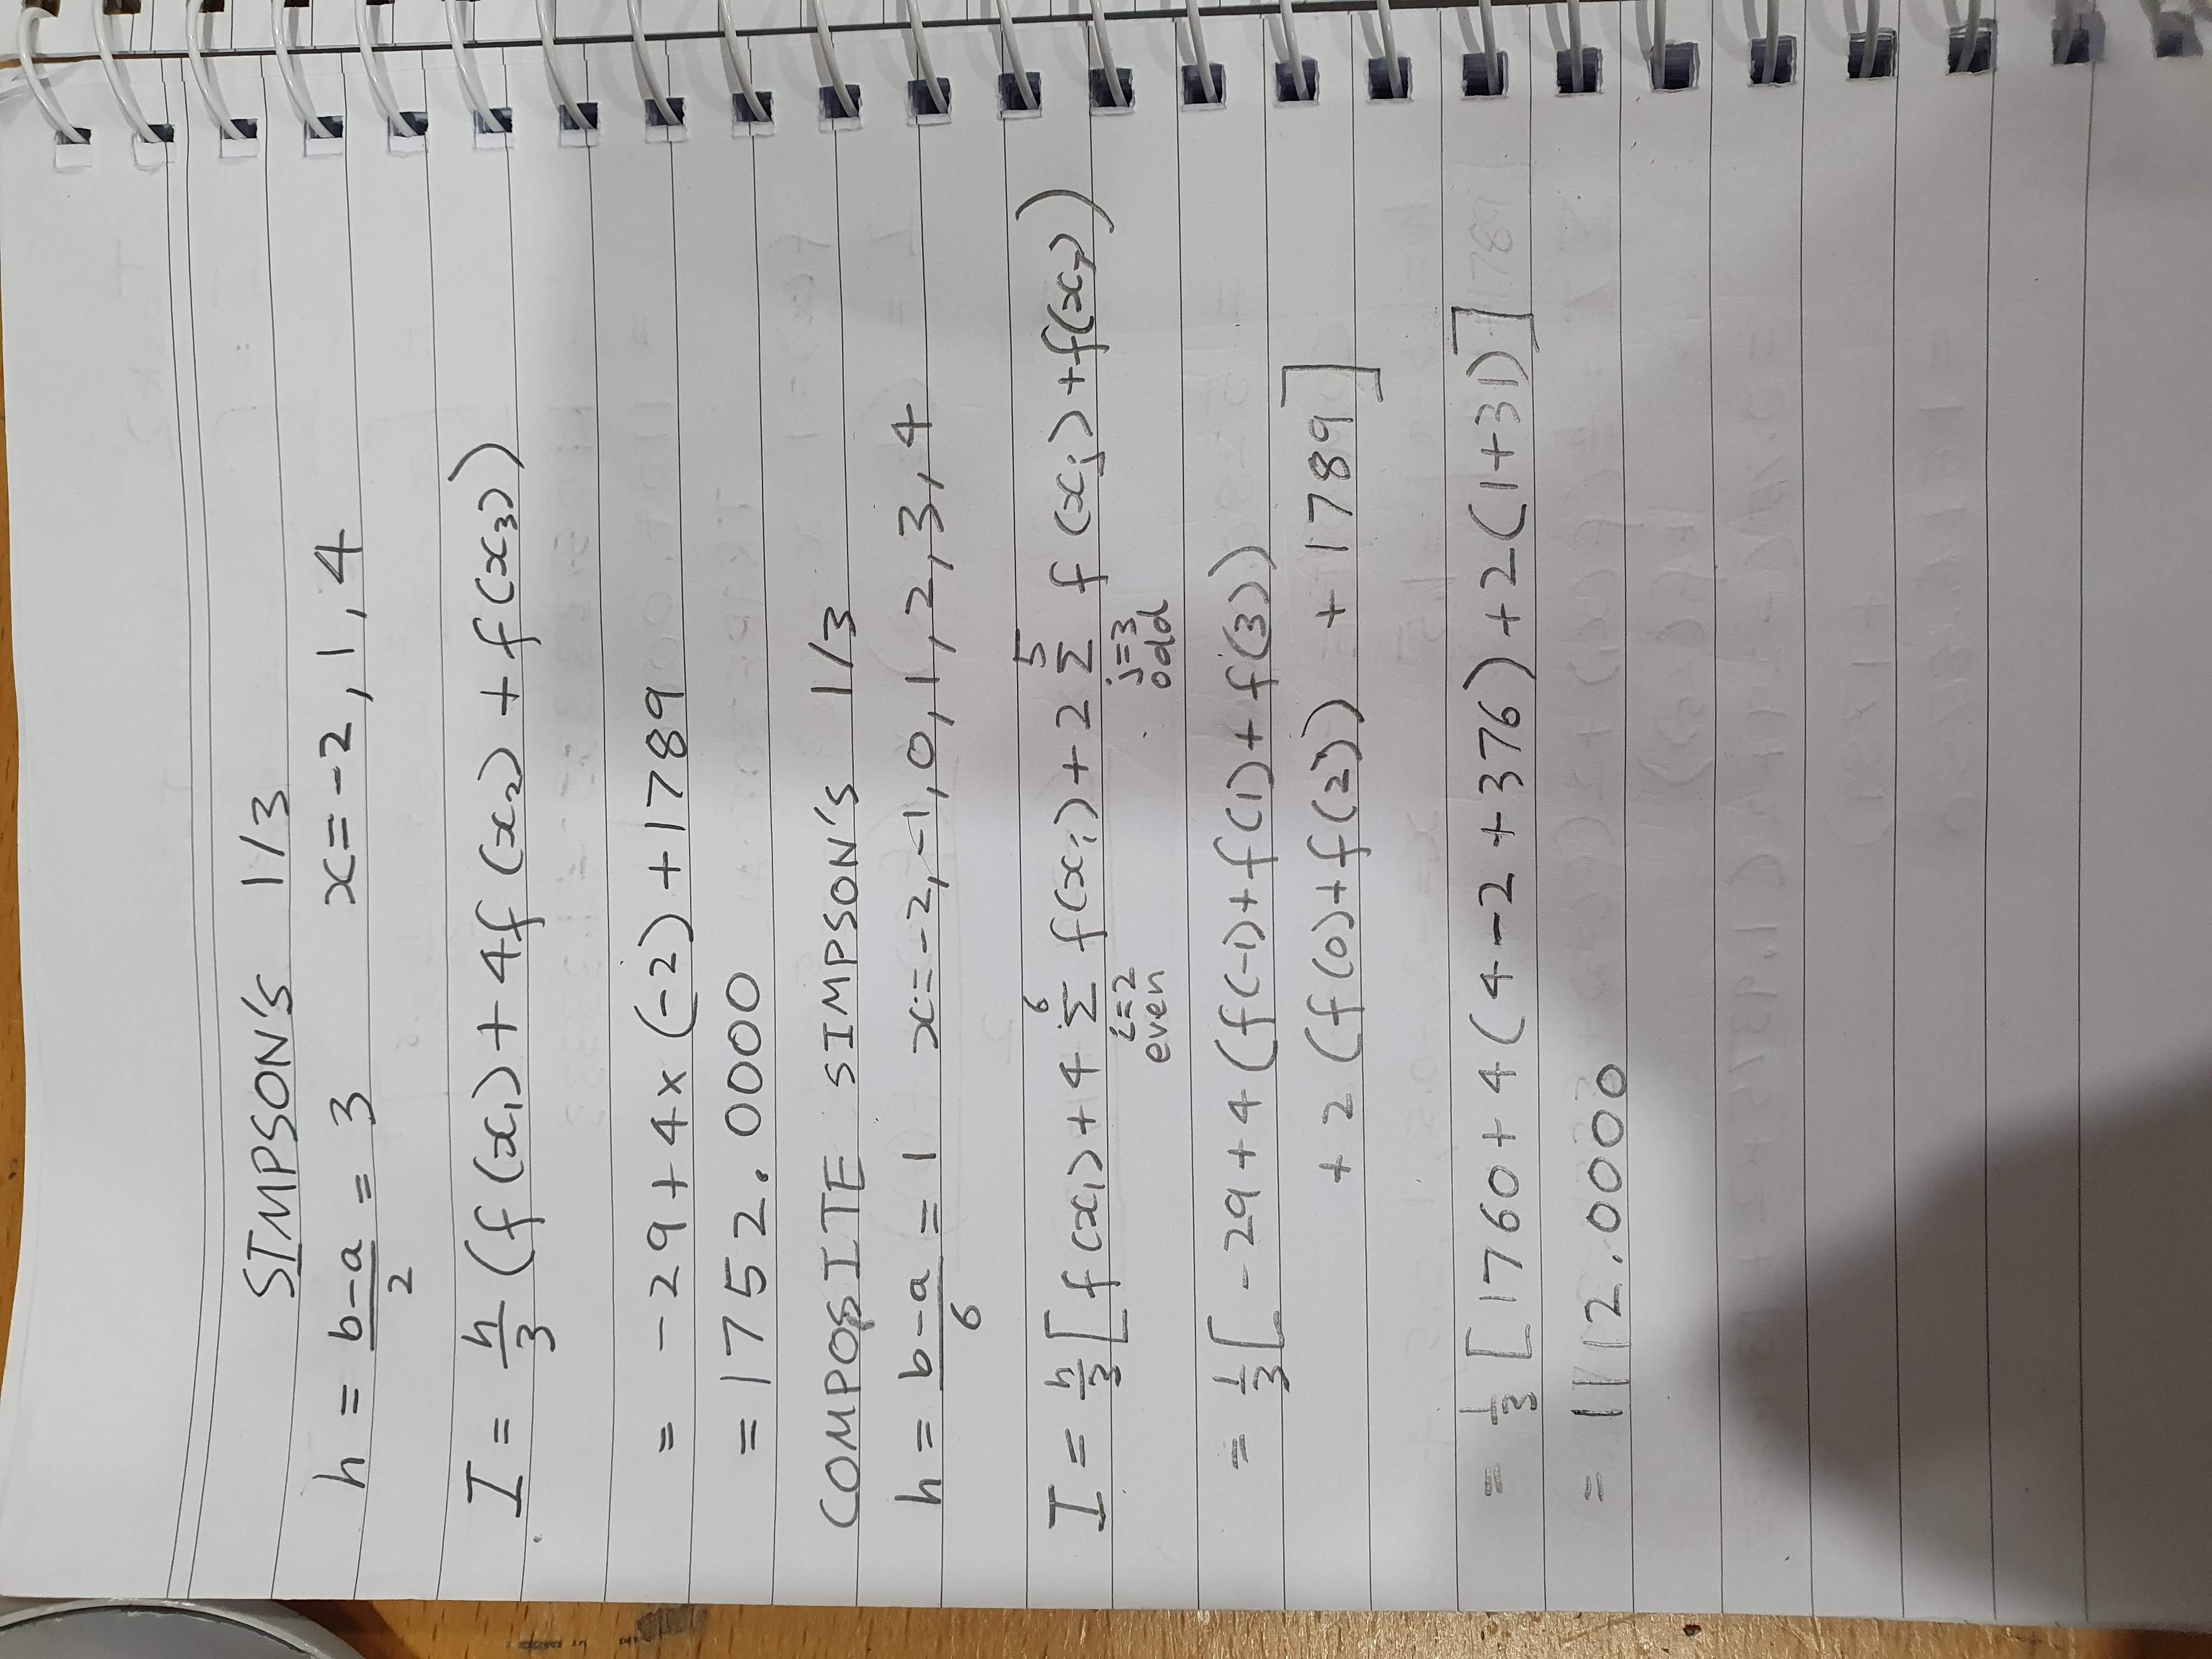 SIMPSON'S 1/3
h = b-a/2 = 3 x = -2, 1, 4
I = h/3 (f(x₁) + 4f(x₂) + f(x₃))
= -29 + 4 x (-2) + 1789
= 1752.0000
COMPOSITE SIMPSON'S 1/3
h = b-a/6 = 1 x = -2, -1, 0, 1, 2, 3, 4
I = h/3 [f(x₁) + 4 6Σi=2 even f(xᵢ) + 2 5Σj=3 odd f(xⱼ) + f(x₇))
= 1/3 [-29 + 4 (f(-1) + f(1) + f(3))
+ 2 (f(0) + f(2)) + 1789]
= 1/3 [1760 + 4(4 - 2 + 376) + 2(1 + 31)]
= 1112.0000